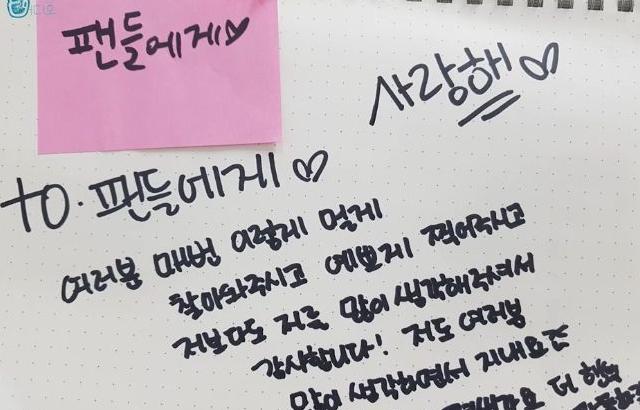 팬들에게♡
사랑해♡
to. 팬들에게♡
여러분 매번 이렇게 멀게
찾아와주시고 예쁘게 찍어주시고
저보다도 저를 많이 생각해주셔서
감사합니다! 저도 여러분
많이 생각하면서 지내요
더